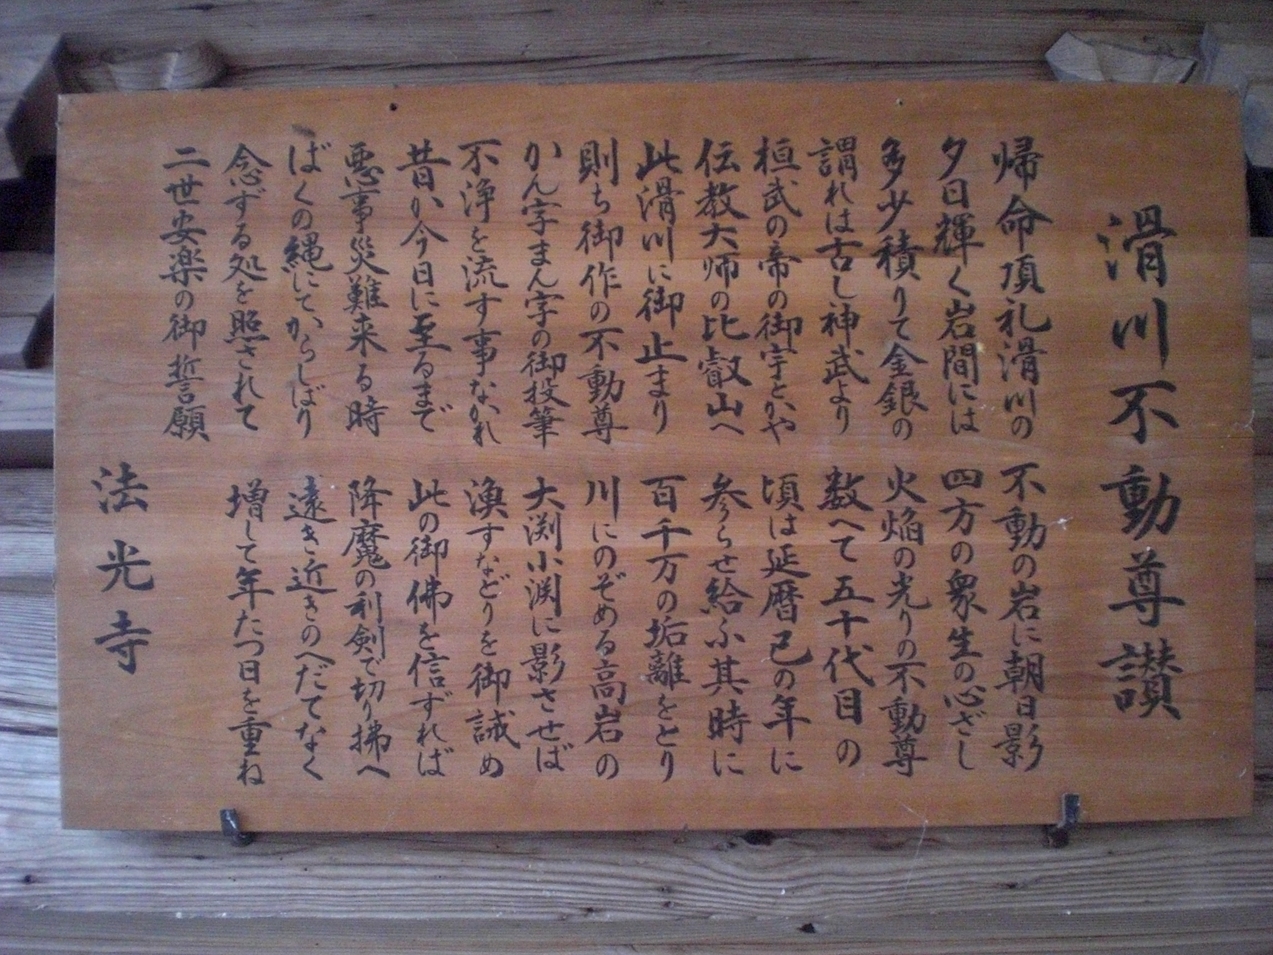 滑川不動尊讃
帰命頂礼滑川の　不動の岩に朝日影
夕日輝く岩間には　四方の衆生の心ざし
多少積りて金銀の　火焔の光りの不動尊
謂れは古し神武より　数へて五十代目の
桓武の帝の御宇とかや　頃は延暦已の年に
伝教大師の比叡山へ　参らせ給ふ其時に
此滑川に御止まり　百千万の垢離をとり
則ち御作の不動尊　川にのぞめる高岩の
かん字まん字の御投筆　大渕小渕に影させば
不浄を流す事なかれ　漁すなどりを御誡め
昔か今日に至るまで　此の御佛を信ずれば
悪事災難来る時　降魔の利剣で切り拂へ
ばくの縄にてからしばり　遠き近きのへだてなく
念ずる処を照されて　増して年たつ日を重ね
二世安楽の御誓願
法光寺